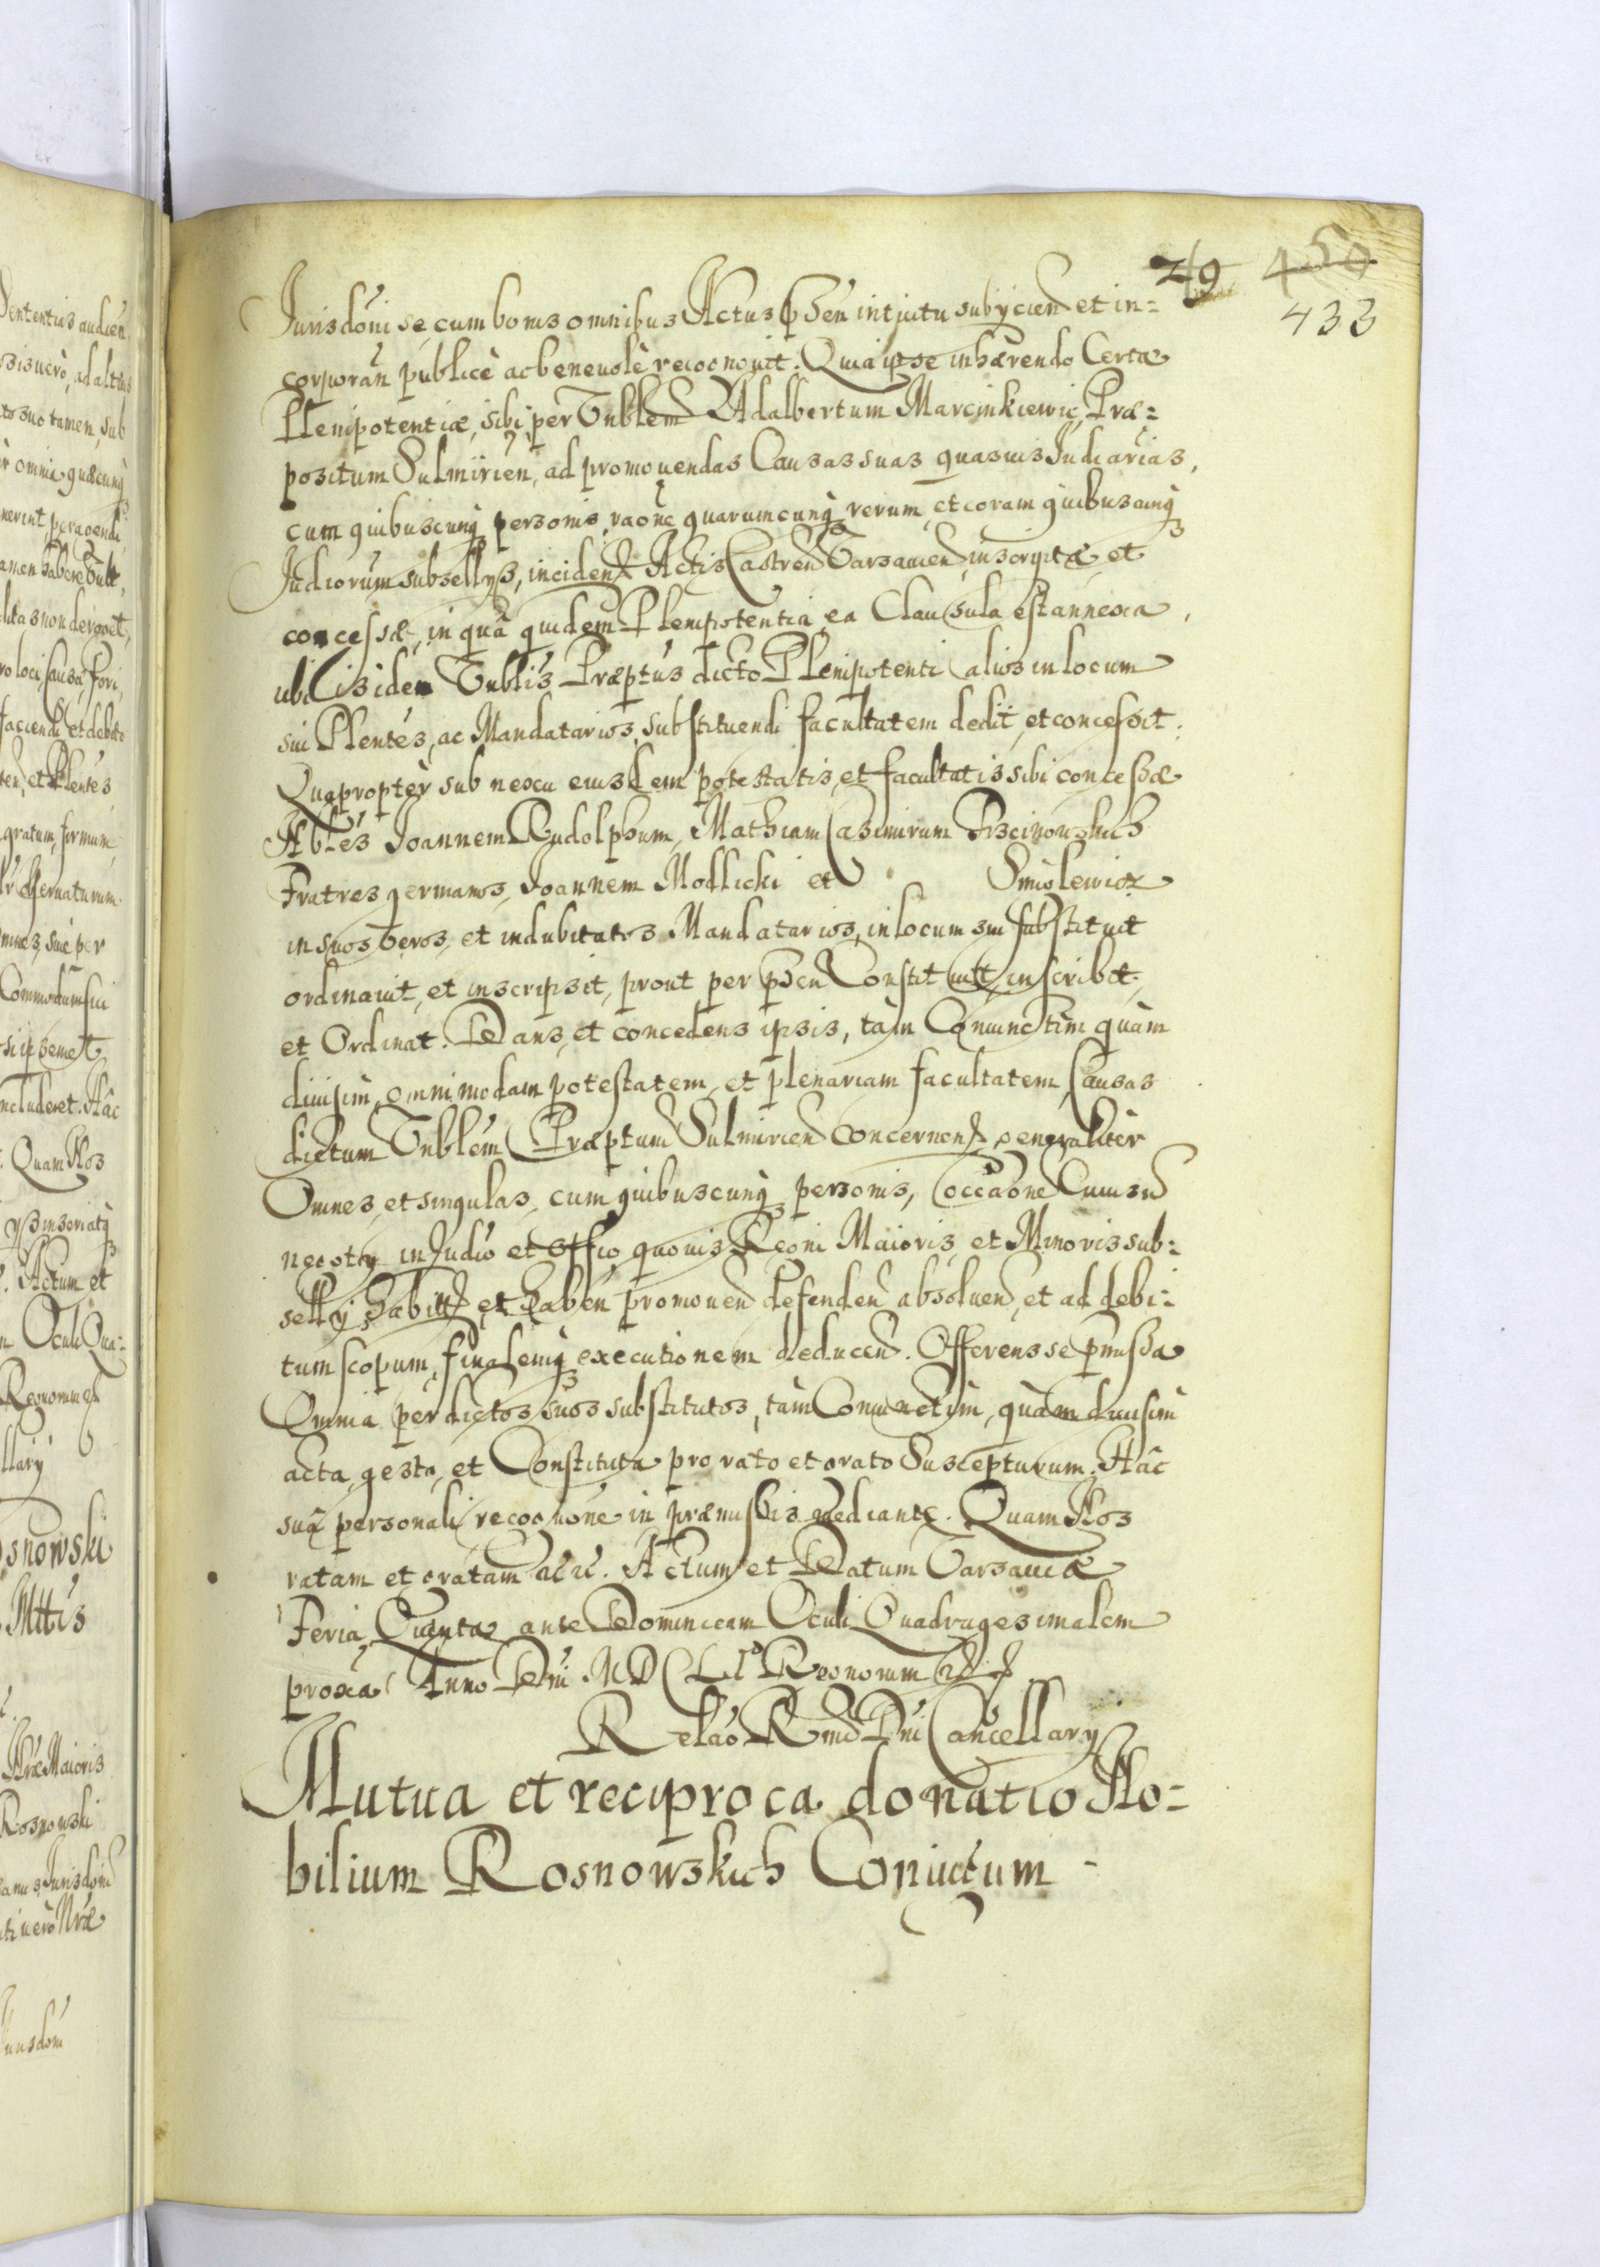 219 450
433
Jurisdōni se cum bonis omnibus Actus pñsen intuitu subÿcien et in=
corporan publicè ac beneuolè recognouit. Quia ipse inhærendo Certæ
Plenipotentiæ, sibi per Vnblem Adalbertum Marcinkiewic, Præ=
positum Sulmirien, ad promouendas Causas suas quasuis Judiarias,
cum quibuscunq personis raone quarumcunq rerum, et coram quibuscunq
Judiorum subsellÿs, inciden Actis Castren Varsauien inscriptæ et
concessæ, in quâ quidem Plenipotentia ea Clausula est annexa,
ubi Isidem Vnblis Præptus dicto Plenipotenti alios in locum
sui Plentes, ac Mandatarios substituendi facultatem dedit, et concessit.
Quapropter sub nexu eiusdem potestatis, et facultatis sibi concessæ
Nbles Joannem Rudolphum, Mathiam Casimirum
Fratres germanos, Joannem Modlicki et Smolewicz
in suos veros, et indubitatos Mandatarios, in locum sui substituit
ordinauit, et inscripsit, prout per pñsen Constituit, inscribit,
et Ordinat. Dans, et concedens ipsis, tàm Coniunctim quàm
diuisim, omnimodam potestatem, et plenariam facultatem, Causas
dictum Vnblem Præptum Sulmirien concernen, generaliter
Omnes, et singulas, cum quibuscunq personis, occaone Cuiusuis
negotÿ in Judio et offio quouis Regni Maioris, et Minoris sub=
sellÿ, habitas et haben promouen defenden absoluen, et ad debi=
tum scopum, finalemq executionem deducen. Offerens se pmissa
Omnia per dictos suos substitutos, tàm Coniunctim, quàm diuisim
acta, gesta, et Constituta pro rato et grato Suscepturum. Hâc
suâ personali recognone in præmissis mediante. Quam Nos
ratam et gratam etc. Actum et Datum Varsauiæ
Feria Quinta ante Dominicam Oculi Quadragesimalem
proxa Anno Dni MDCLI° Regnorum
Relaõ Rmd Dni Cancellarÿ
Mutua et reciproca donatio No=
bilium Rosnowskich Coniugum